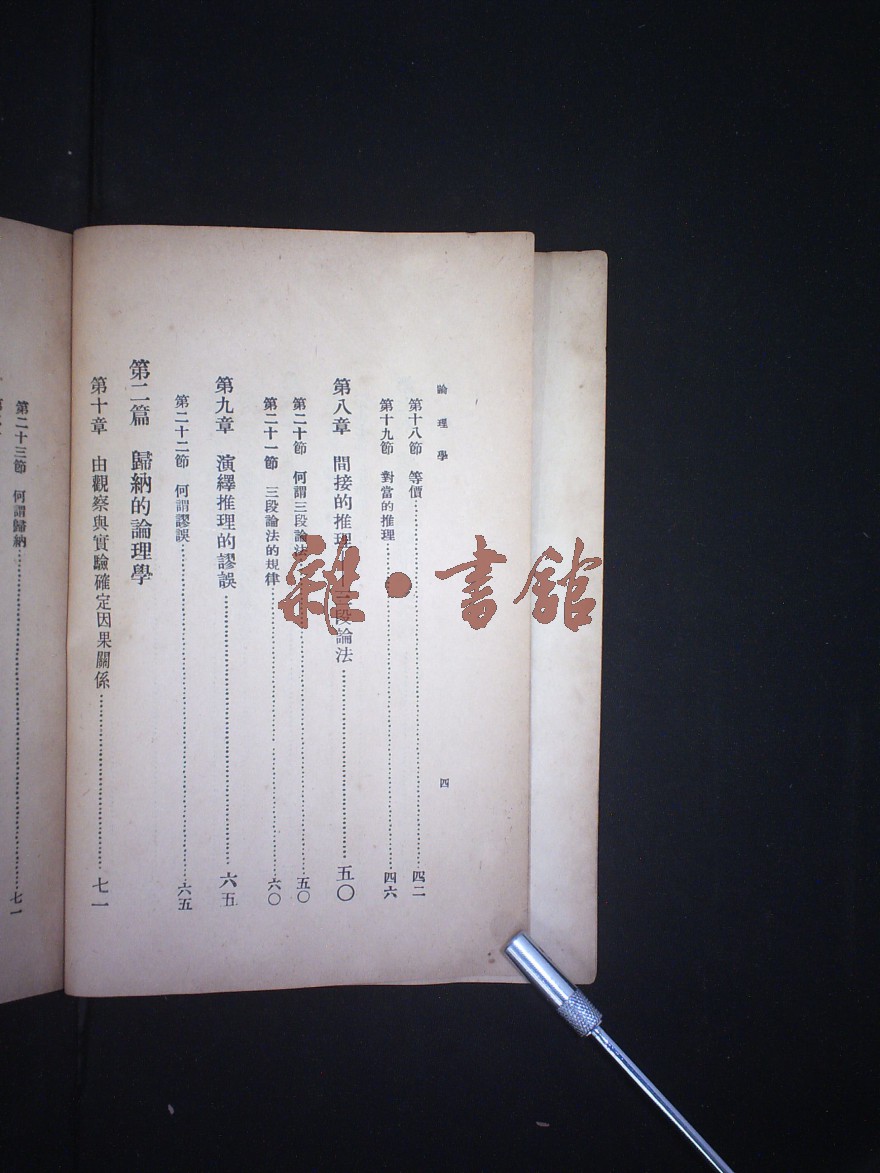 論理學
四
第十八節 等價……四二
第十九節 對當的推理……四六
第八章 間接的推理——三段論法……五〇
第二十節 何謂三段論法……五〇
第二十一節 三段論法的規律……六〇
第九章 演繹推理的謬誤……六五
第二十二節 何謂謬誤……六五
第二篇 歸納的論理學
第十章 由觀察與實驗確定因果關係……七一
第二十三節 何謂歸納……七一
雜·書館